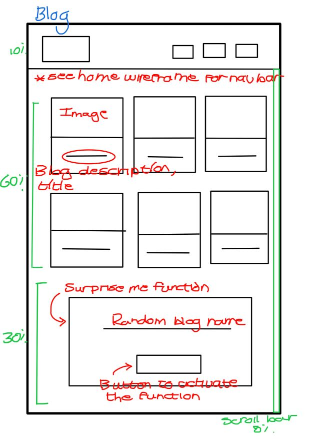 Blog
10%
*see home wireframe for navbar
Image
Blog description,
title
60%
Surprise me function
Random blog name
30%
Button to activate
the function
Scroll bar
8%